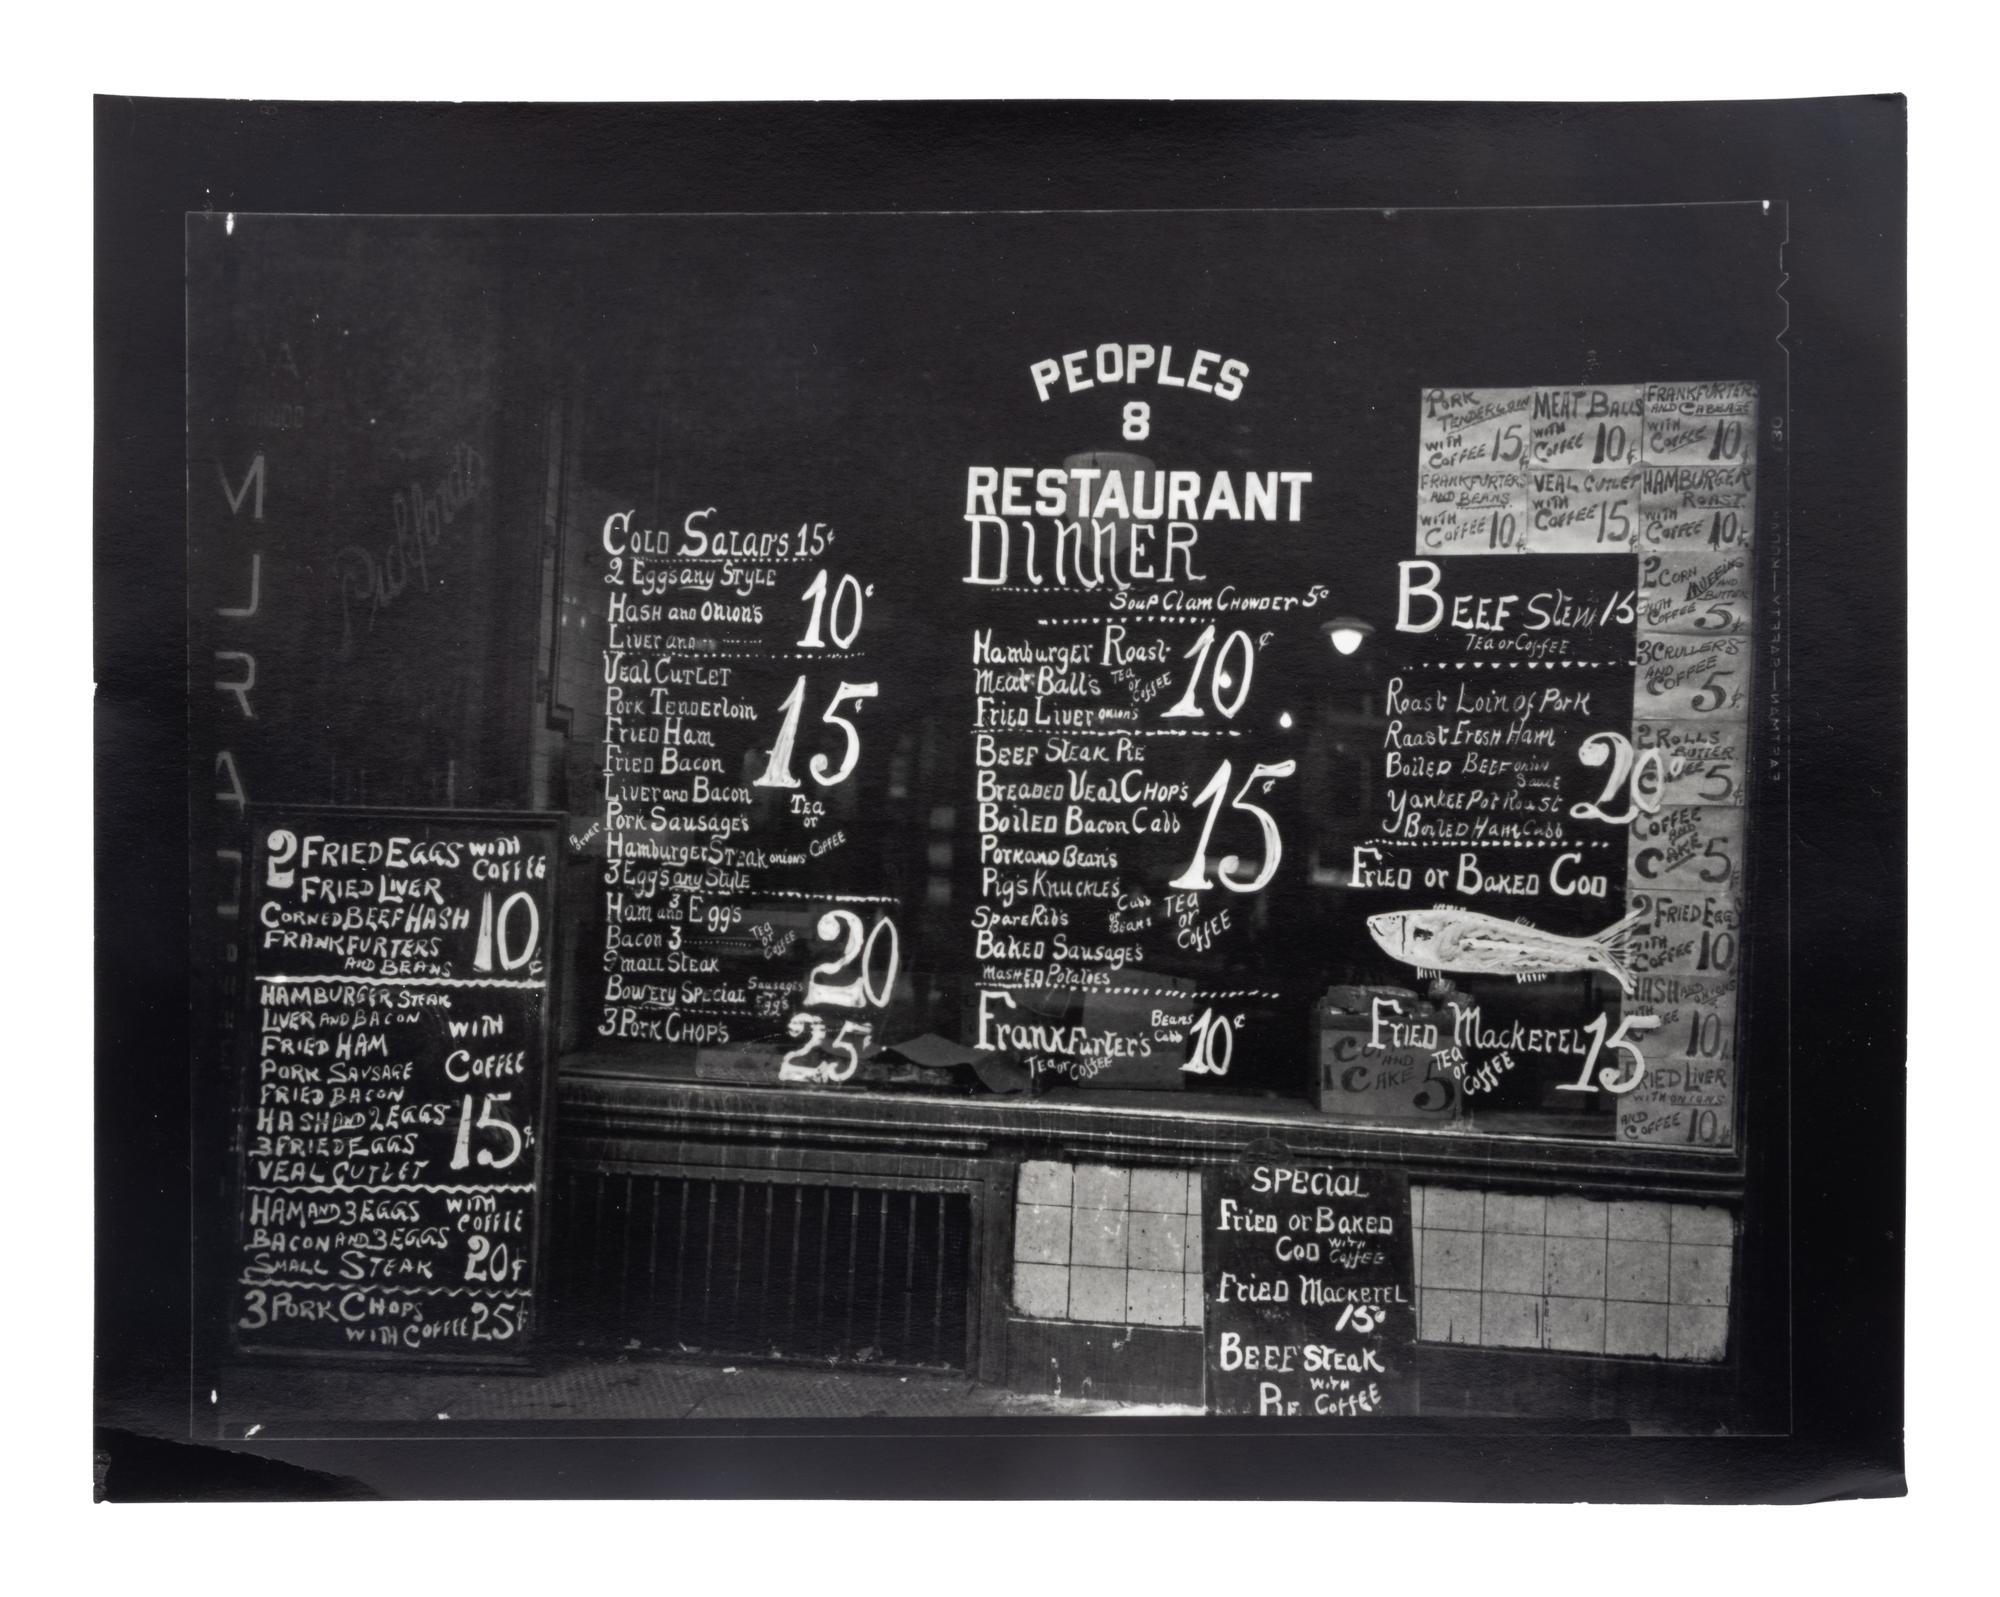 PEOPLES
8
RESTAURANT
DINNER
SOUP CLAM CHOWDER 5¢
HAMBURGER ROAST
MEAT BALL'S TEA or COFFEE 10¢
FRIED LIVER ONION'S
BEEF STEAK PIE
BREADED VEAL CHOP'S
BOILED BACON CABB 15¢
PORK AND BEAN'S
PIG'S KNUCKLE'S CABB
SPARE RIB'S or BEANS TEA or COFFEE
BAKED SAUSAGE'S
MASHED POTATOES
FRANKFURTER'S BEANS CABB 10¢
TEA or COFFEE
COLD SALAD'S 15¢
2 Egg's any STYLE
HASH AND ONION'S 10¢
LIVER AND
VEAL CUTLET
PORK TENDERLOIN
FRIED HAM 15¢
FRIED BACON
LIVER AND BACON
TEA or COFFEE
PORK SAUSAGE'S
HAMBURGER STEAK ONIONS
3 Egg's any STYLE
HAM AND 3 Egg's
BACON 3 TEA or COFFEE 20
SMALL STEAK
BOWERY SPECIAL Sausages Egg's
3 PORK CHOP'S 25¢
BEEF STEW 15
TEA or COFFEE
ROAST LOIN of PORK
ROAST FRESH HAM
BOILED BEEF Sauce 20¢
YANKEE POT ROAST
BOILED HAM CABB
FRIED or BAKED COD
FRIED MACKEREL 15
TEA or COFFEE
PORK TENDERLOIN WITH COFFEE 15¢
MEAT BALLS WITH COFFEE 10¢
FRANKFURTERS AND CABBAGE WITH COFFEE 10
FRANKFURTERS AND BEANS WITH COFFEE 10¢
VEAL CUTLET WITH COFFEE 15¢
HAMBURGER ROAST WITH COFFEE 10¢
2 CORN MUFFINS AND BUTTER WITH COFFEE 5¢
3 CRULLERS AND COFFEE 5¢
2 ROLLS BUTTER 5¢
COFFEE AND CAKE 5¢
2 FRIED EGGS WITH COFFEE 10
HASH AND ONIONS 10¢
FRIED LIVER WITH ONIONS AND COFFEE 10¢
AND CAKE 5
2 FRIED EGGS WITH COFFEE
FRIED LIVER
CORNED BEEF HASH 10¢
FRANKFURTERS
AND BEANS
HAMBURGER STEAK
LIVER AND BACON WITH
FRIED HAM
PORK SAUSAGE COFFEE
FRIED BACON
HASH AND 2 EGGS 15¢
3 FRIED EGGS
VEAL CUTLET
HAM AND 3 EGGS WITH COFFEE
BACON AND 3 EGGS
SMALL STEAK 20¢
3 PORK CHOPS
WITH COFFEE 25¢
SPECIAL
FRIED or BAKED
COD WITH COFFEE
FRIED MACKEREL
15¢
BEEF STEAK
PIE WITH COFFEE